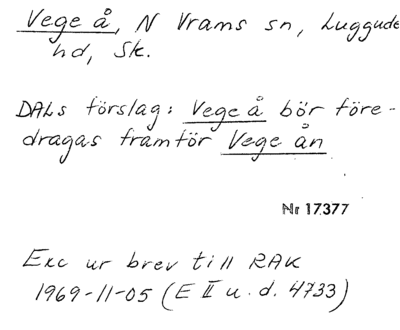 Vege å, N Vrams sn, Luggude
hd, Sk.
DALs förslag: Vege å bör före-
dragas framför Vege ån
Nr 17377
Exc ur brev till RAK
1969-11-05 (E II u. d. 4733)